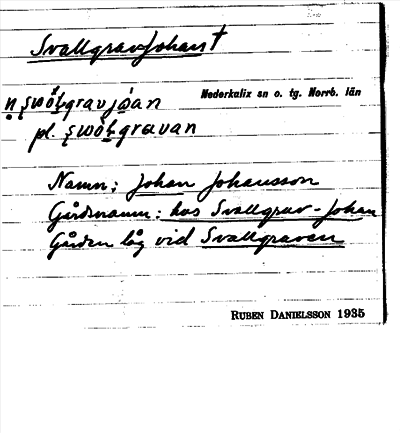 Svallgravjohan †
Nederkalix sn o. tg. Norrb. län
pl.
Namn: Johan Johansson
Gårdsnamn: hos Svallgrav-Johan
Gården låg vid Svallgraven
RUBEN DANIELSSON 1935